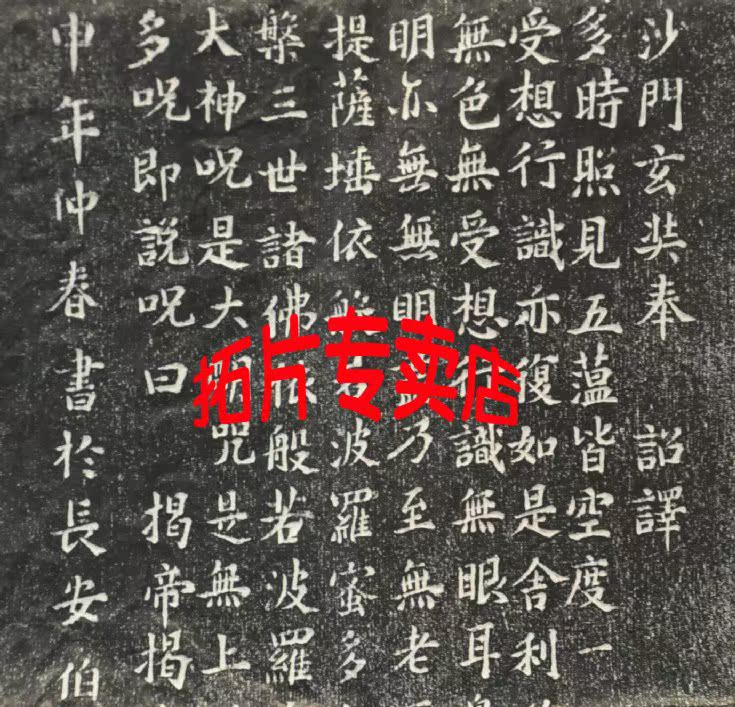 沙門玄奘奉 詔譯
多時照見五蕰皆空度一
受想行識亦復如是舍利
無色無受想行識無眼耳
明亦無無明盡乃至無老
提薩埵依般若波羅蜜多
槃三世諸佛依般若波羅
大神呪是大明咒是無上
多呪即説呪曰 揭帝揭
申年仲春書於長安伯
拓片专卖店